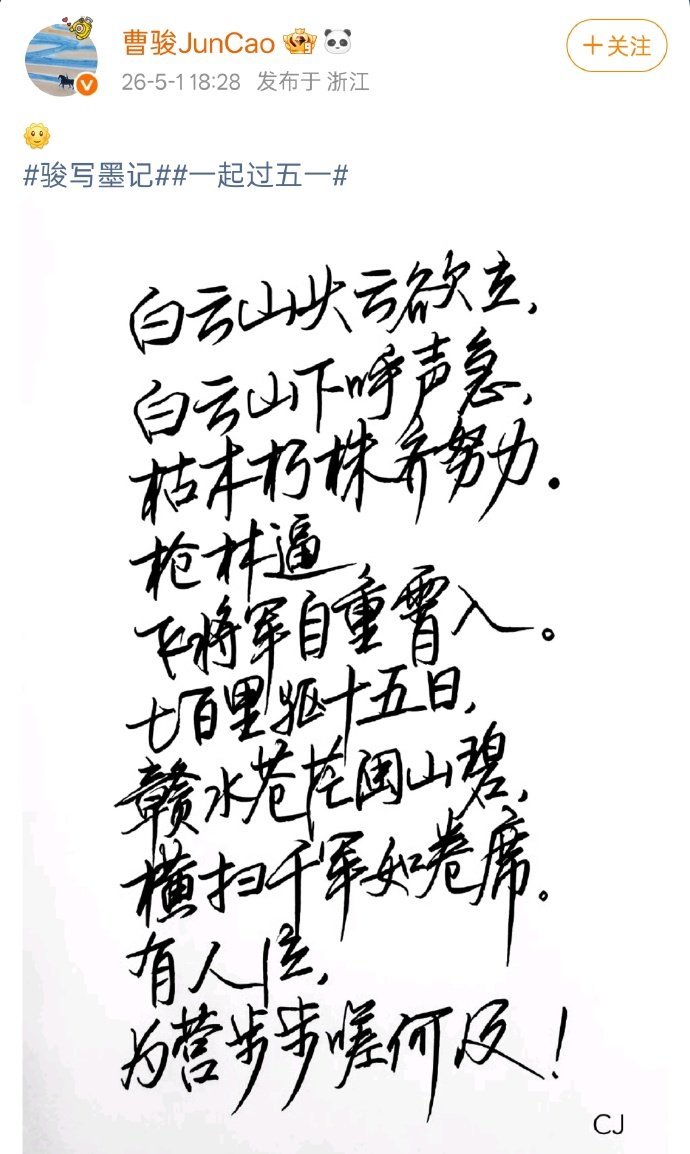 曹骏JunCao
+关注
26-5-1 18:28 发布于 浙江
#骏写墨记##一起过五一#
白云山头云欲立,
白云山下呼声急,
枯木朽株齐努力.
枪林逼
飞将军自重霄入。
七百里驱十五日,
赣水苍茫闽山碧,
横扫千军如卷席。
有人泣,
为营步步嗟何及!
CJ